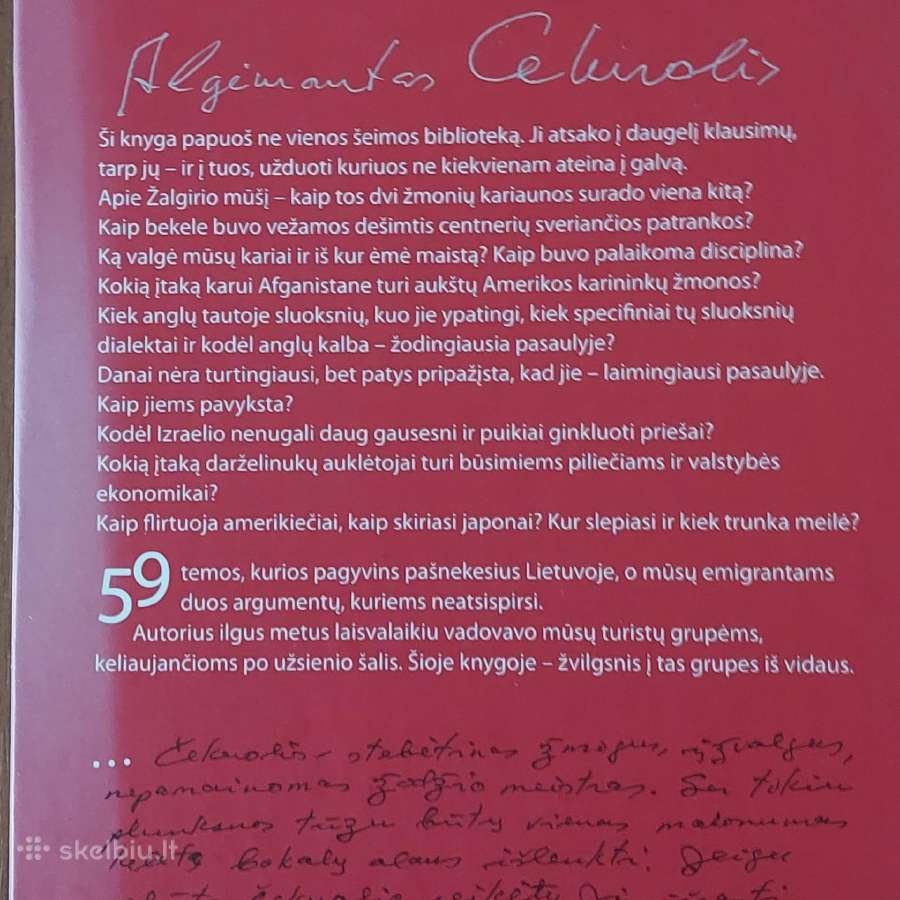 Algimantas Čekuolis
Ši knyga papuoš ne vienos šeimos biblioteką. Ji atsako į daugelį klausimų,
tarp jų – ir į tuos, užduoti kuriuos ne kiekvienam ateina į galvą.
Apie Žalgirio mūšį – kaip tos dvi žmonių kariaunos surado viena kitą?
Kaip bekele buvo vežamos dešimtis centnerių sveriančios patrankos?
Ką valgė mūsų kariai ir iš kur ėmė maistą? Kaip buvo palaikoma disciplina?
Kokią įtaką karui Afganistane turi aukštų Amerikos karininkų žmonos?
Kiek anglų tautoje sluoksnių, kuo jie ypatingi, kiek specifiniai tų sluoksnių
dialektai ir kodėl anglų kalba – žodingiausia pasaulyje?
Danai nėra turtingiausi, bet patys pripažįsta, kad jie – laimingiausi pasaulyje.
Kaip jiems pavyksta?
Kodėl Izraelio nenugali daug gausesni ir puikiai ginkluoti priešai?
Kokią įtaką darželinukų auklėtojai turi būsimiems piliečiams ir valstybės
ekonomikai?
Kaip flirtuoja amerikiečiai, kaip skiriasi japonai? Kur slepiasi ir kiek trunka meilė?
59 temos, kurios pagyvins pašnekesius Lietuvoje, o mūsų emigrantams
duos argumentų, kuriems neatsispirsi.
Autorius ilgus metus laisvalaikiu vadovavo mūsų turistų grupėms,
keliaujančioms po užsienio šalis. Šioje knygoje – žvilgsnis į tas grupes iš vidaus.
... Čekuolis – stebėtinas žmogus, įžvalgus,
nepamainomas žodžio meistras. Su tokiu
plunksnos tūzu būtų vienas malonumas
keletą bokalų alaus išlenkti. Jeigu
skelbiu.lt